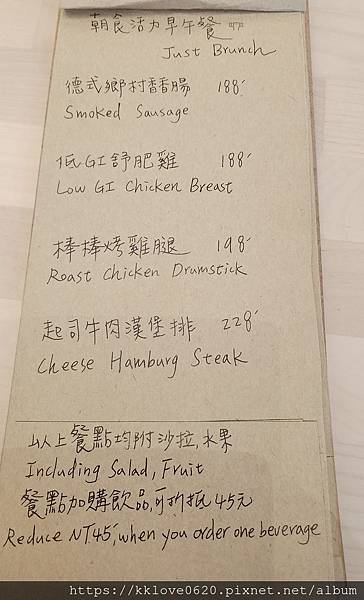 朝食活力早午餐
Just Brunch
德式鄉村香腸 188
Smoked Sausage
低GI舒肥雞 188
Low GI Chicken Breast
棒棒烤雞腿 198
Roast Chicken Drumstick
起司牛肉漢堡排 228
Cheese Hamburg Steak
以上餐點均附沙拉,水果
Including Salad, Fruit
餐點加購飲品,可折抵45元
Reduce NT45, when you order one beverage
https://kklove0620.pixnet.net/album